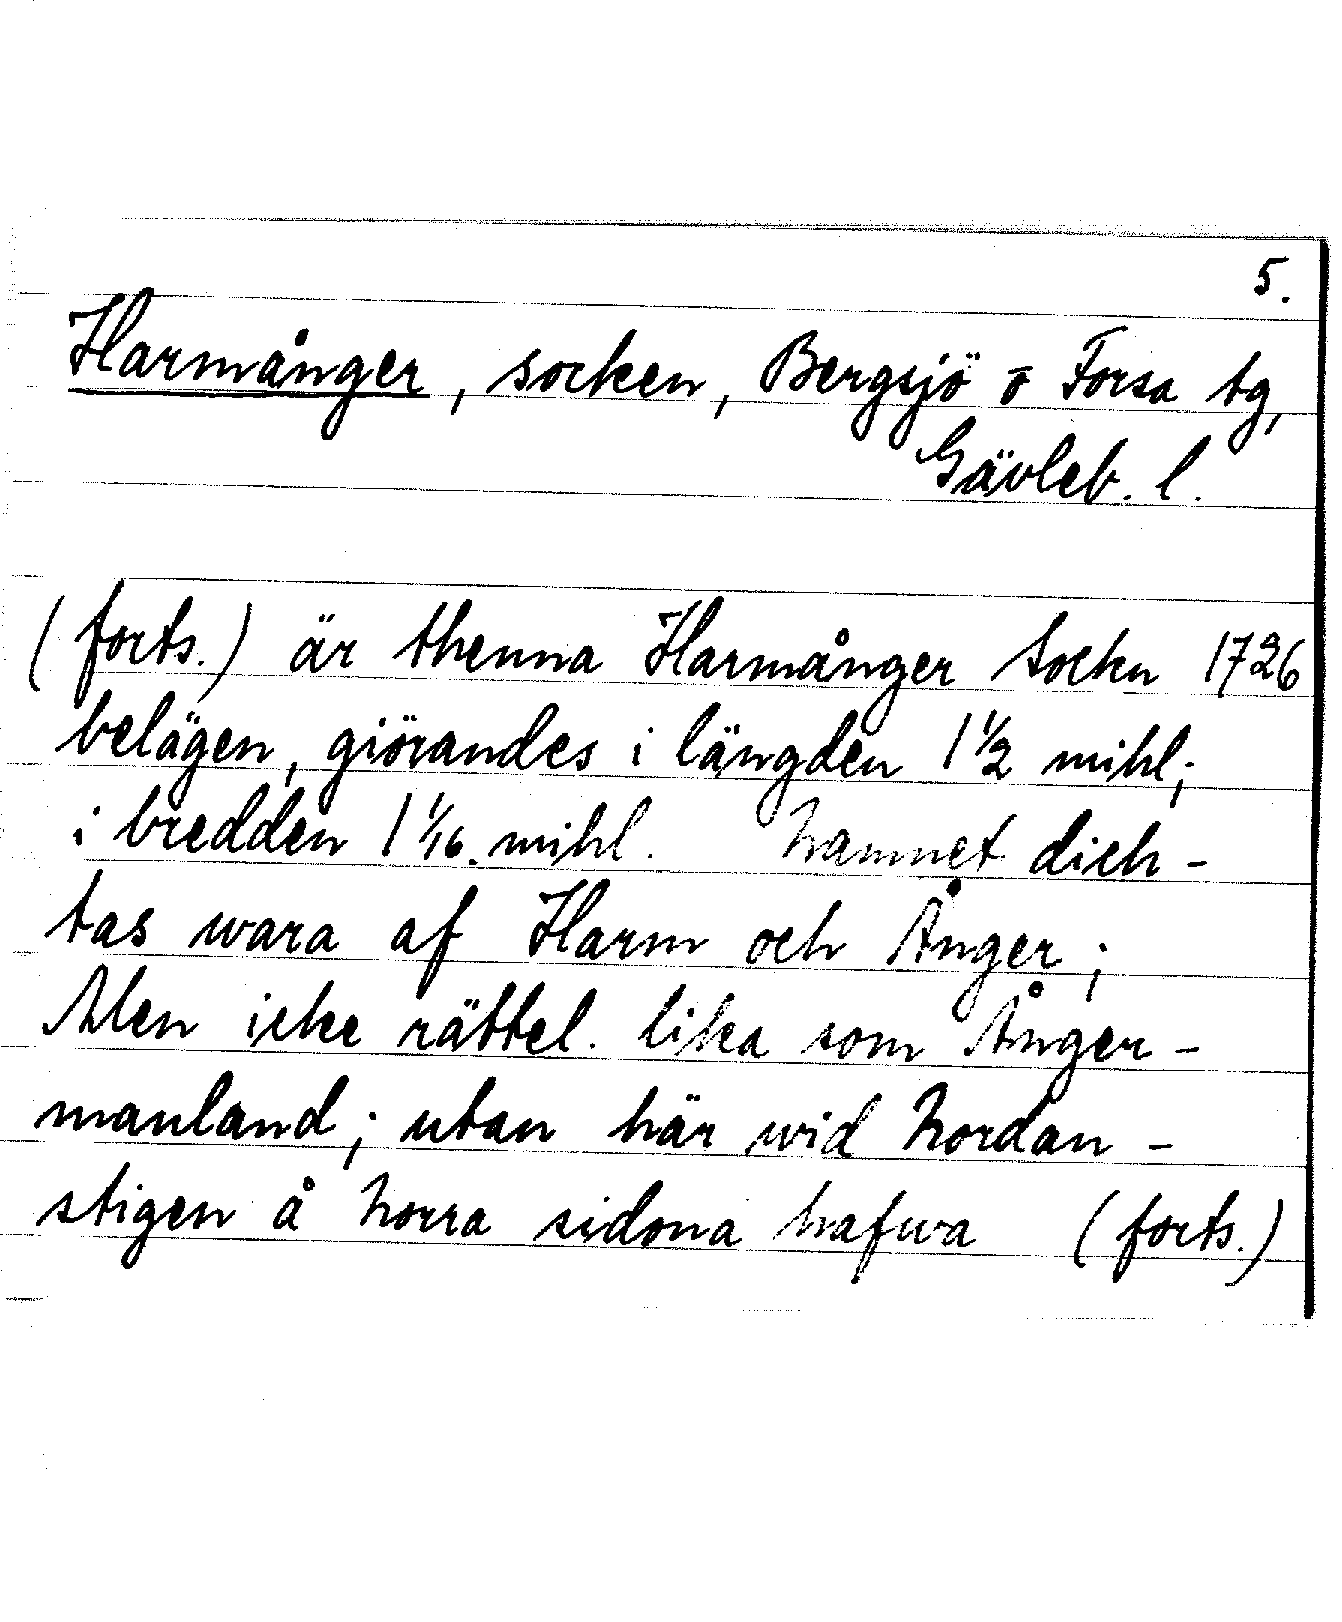 5.
Harmånger, socken, Bergsjö o Forsa tg,
Gävleb. l.
(forts.) är thenna Harmånger Sockn 1726
belägen, giörandes i längden 1 1/2 mihl;
i bredden 1 1/16. mihl. Namnet dich-
tas wara af Harm och Ånger;
Men icke rättel. lika som Ånger-
manland; utan här wid Nordan-
stigen å Norra sidona hafwa (forts.)